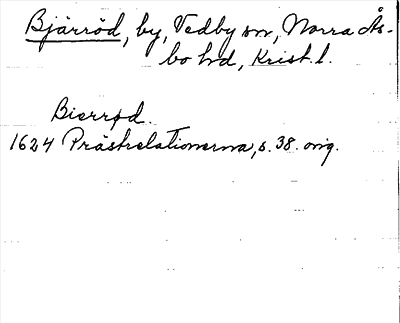 Bjärröd, by, Vedby sn, Norra Ås-
bo hd, Krist. l.
Bierrød.
1624 Prästrelationerna, s. 38. orig.